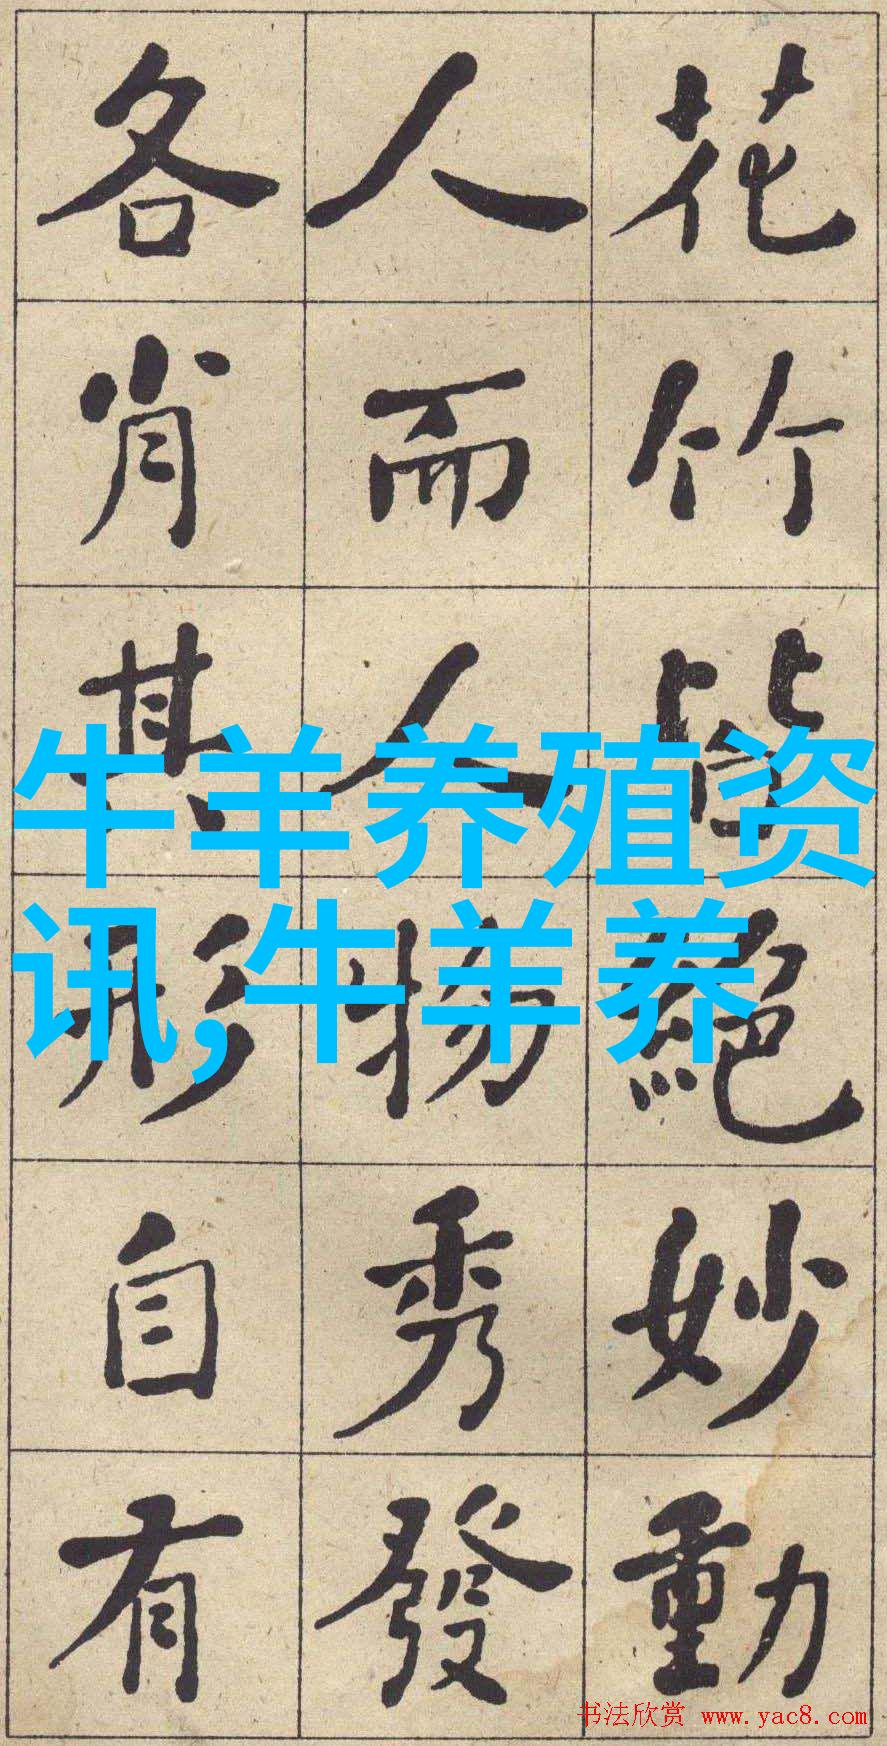 花竹皆絕妙動
人而人物秀發
各肖其形自有
牛羊养殖资
讯,牛羊养
书法欣赏 www.yac8.com